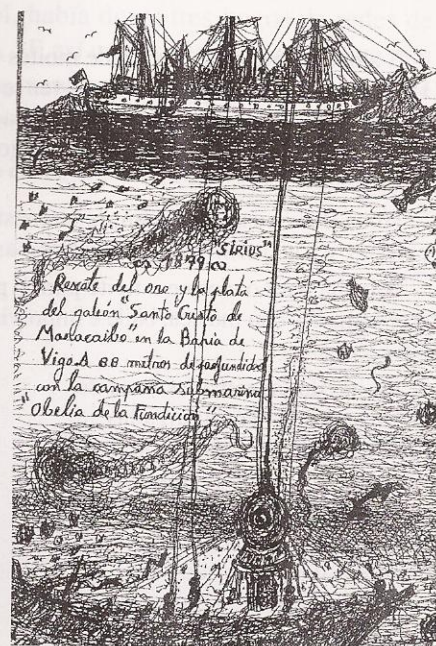 "SIRIUS"
1879
Rescate del oro y la plata
del galeón "Santo Cristo de
Maracaibo" en la Bahia de
Vigo A 88 metros de profundidad
con la campana submarina
"Obelia de la Fundicion"